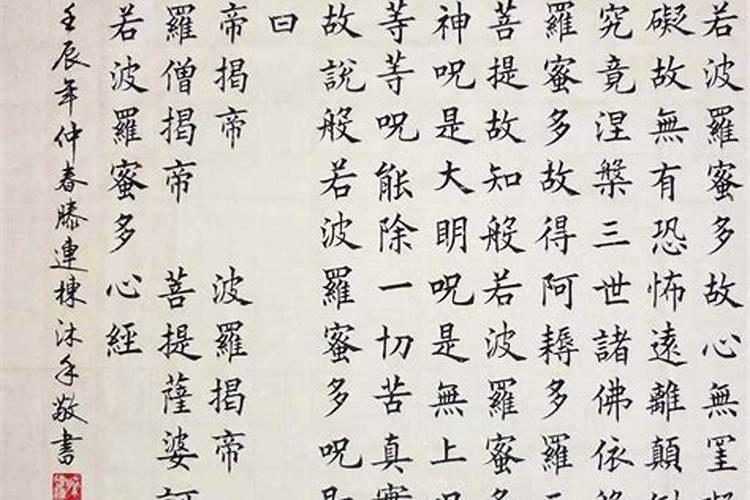 若波羅蜜多故心無罣
礙故無有恐怖遠離顛
究竟涅槃三世諸佛依
羅蜜多故得阿耨多羅
菩提故知般若波羅蜜多
神呪是大明呪是無上呪
等等呪能除一切苦真實
故說般若波羅蜜多呪即
曰
帝揭帝 波羅揭帝
羅僧揭帝 菩提薩婆訶
若波羅蜜多心經
壬辰年仲春滕連棟沐手敬書